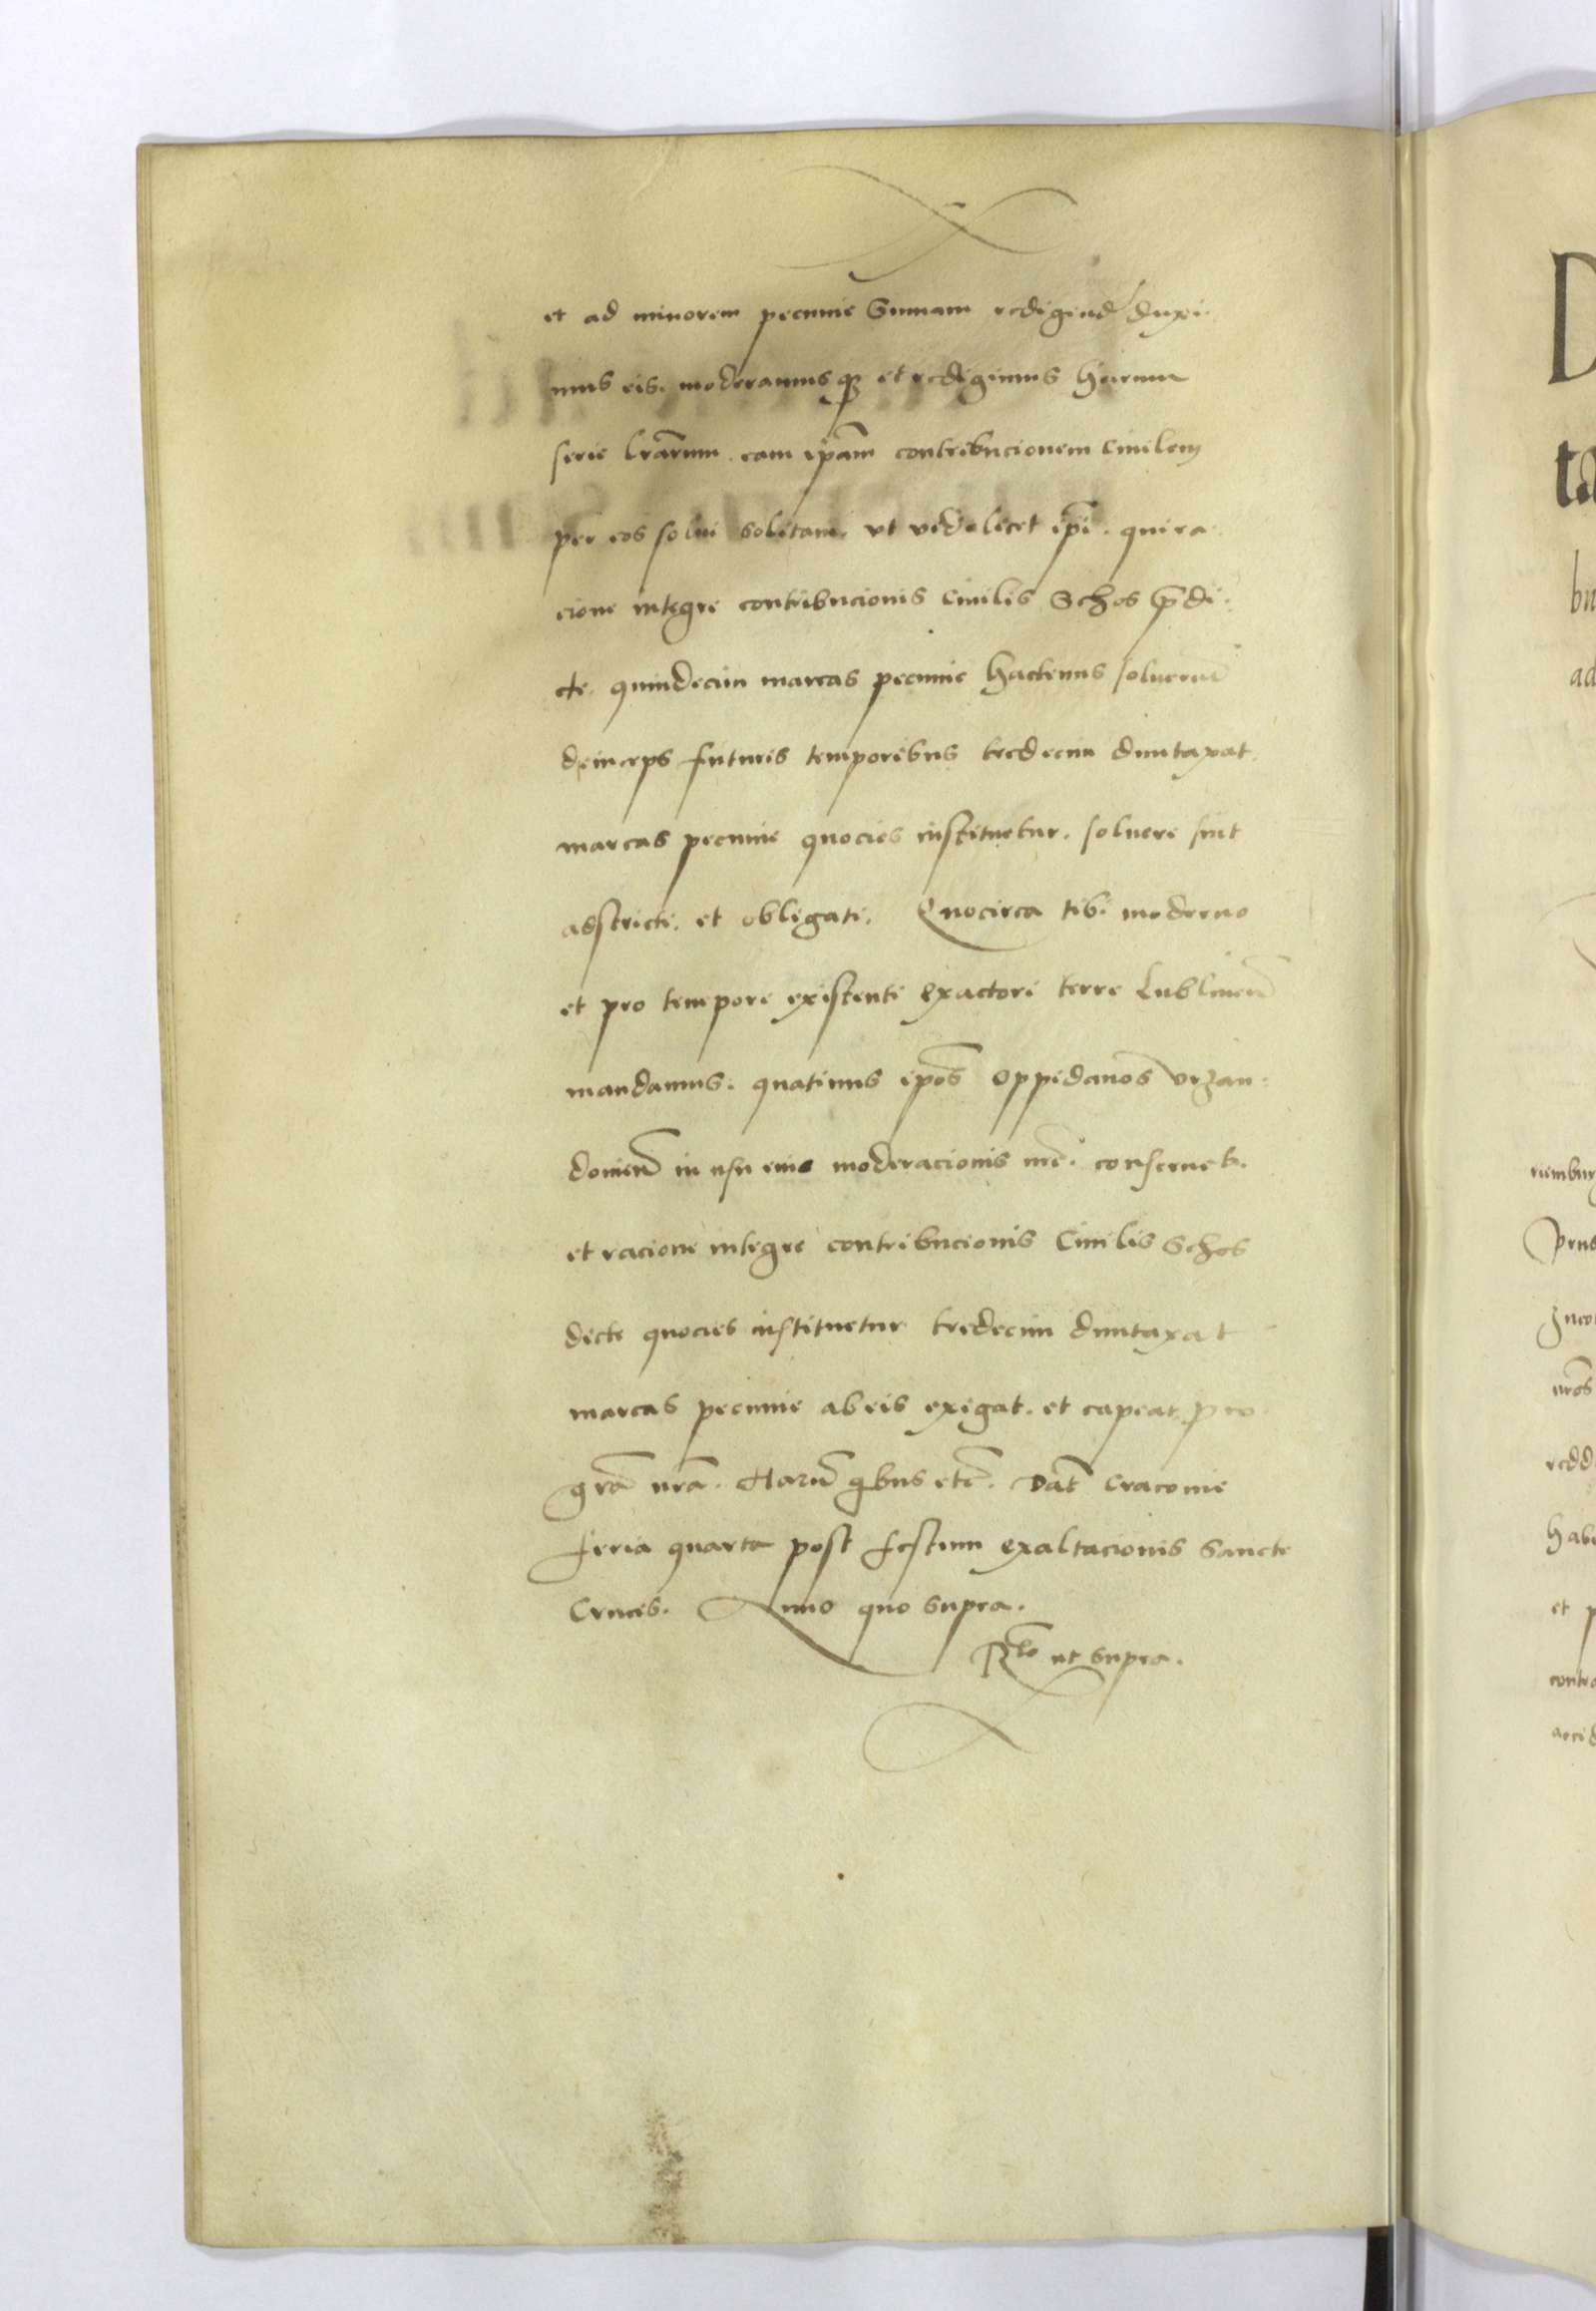 et ad minorem pecunie Summam redigend duxi
mus eis. moderamusq3 et redigimus harum
serie lrarum. eam ipam contribucionem Civilem
per eos solui solitam, vt videlicet ipi. qui ra
cione integre contribucionis Civilis Schos predi:
cte. quindecim marcas pecunie hactenus soluerut
deinceps futuris temporibus tredecim duntaxat.
marcas pecunie quocies instituetur. soluere sint
adstricti. et obligati. Quocirca tibi moderno
et pro tempore existenti exactori terre Lublinen
mandamus. quatinus ipos Oppidanos vrzan:
douien in usu eius moderacionis nre. conseruet.
et racione integre contribucionis Civilis Schos
dicte quocies instituetur tredecim duntaxat
marcas pecunie ab eis exigat. et capeat pro
gra nra. Haru qbus etc. Dat Cracouie
feria quarta post festum exaltacionis Sancte
Crucis. Anno quo supra.
Rlo ut supra.
D
bu
ad
rumbur
nros
redd
habe
et p
contra